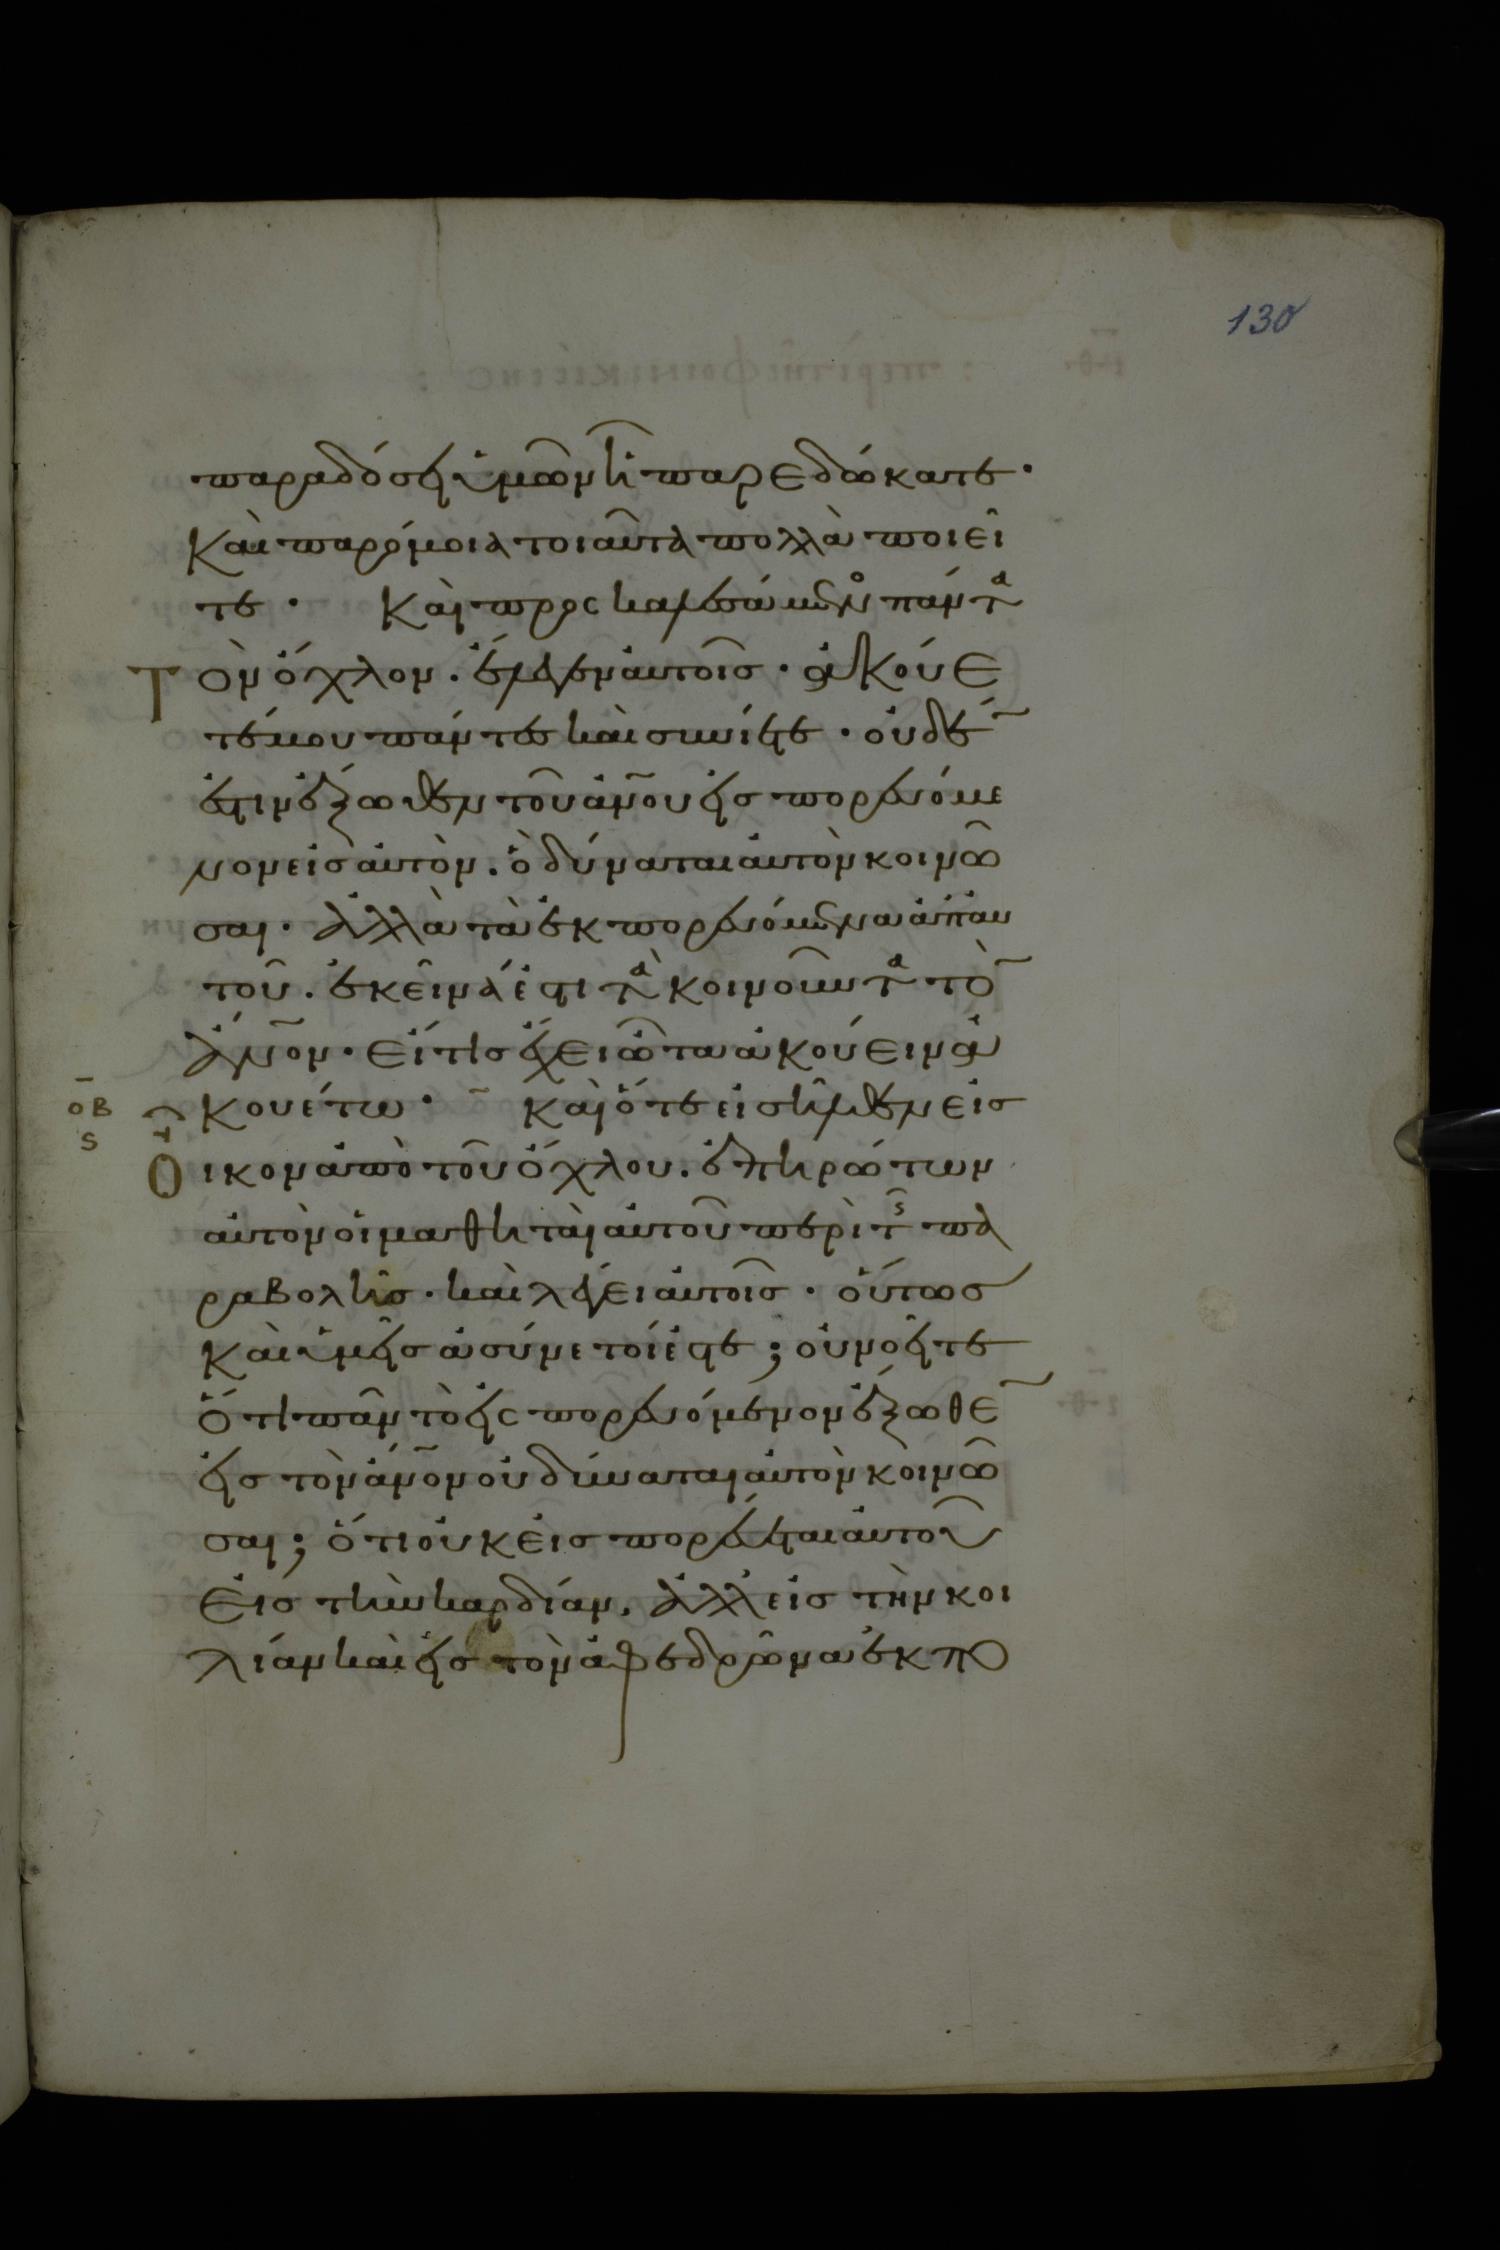 130
παραδόσει ὑμῶν ἧ παρεδώκατε·
Καὶ παρόμοια τοιαῦτα πολλὰ ποιεῖ
τε· Καὶ προσκαλεσάμενος πάντα
τὸν ὄχλον. ἔλεγεν αὐτοῖς· ἀκούε
τέ μου πάντες καὶ συνίετε· οὐδέ̅
ἐστιν ἔξωθεν τοῦ ἀν̅ου εἰσπορευόμε
νον εἰς αὐτὸν. ὃ δύναται αὐτὸν κοινῶ
σαι· ἀλλὰ τὰ ἐκπορευόμενα ἀπ' αυ
τοῦ. ἐκεῖνά ἐστι τὰ κοινοῦντα τὸ̅
ἄν̅ον· εἴ τις ἔχει ὦτα ἀκούειν ἀ
κουέτω· Καὶ ὅτε εἰσῆλθεν εἰς
οβ
ς
οἶκον ἀπὸ τοῦ ὄχλου. ἐπηρώτων
αὐτὸν οἱ μαθηταὶ αὐτοῦ περὶ τῆς πα
ραβολῆς· καὶ λέγει αὐτοῖς· οὕτως
καὶ ὑμεῖς ἀσύνετοί ἐστε; οὐ νοεῖτε
ὅτι πᾶν τὸ εἰσπορευόμενον ἔξωθε̅
εἰς τὸν ἄν̅ον οὐ δύναται αὐτὸν κοινῶ
σαι; ὅτι οὐκ εἰσπορεύεται αὐτοῦ
εἰς τὴν καρδίαν, ἀλλ' εἰς τὴν κοι
λίαν καὶ εἰς τὸν ἀφεδρῶνα ἐκπο